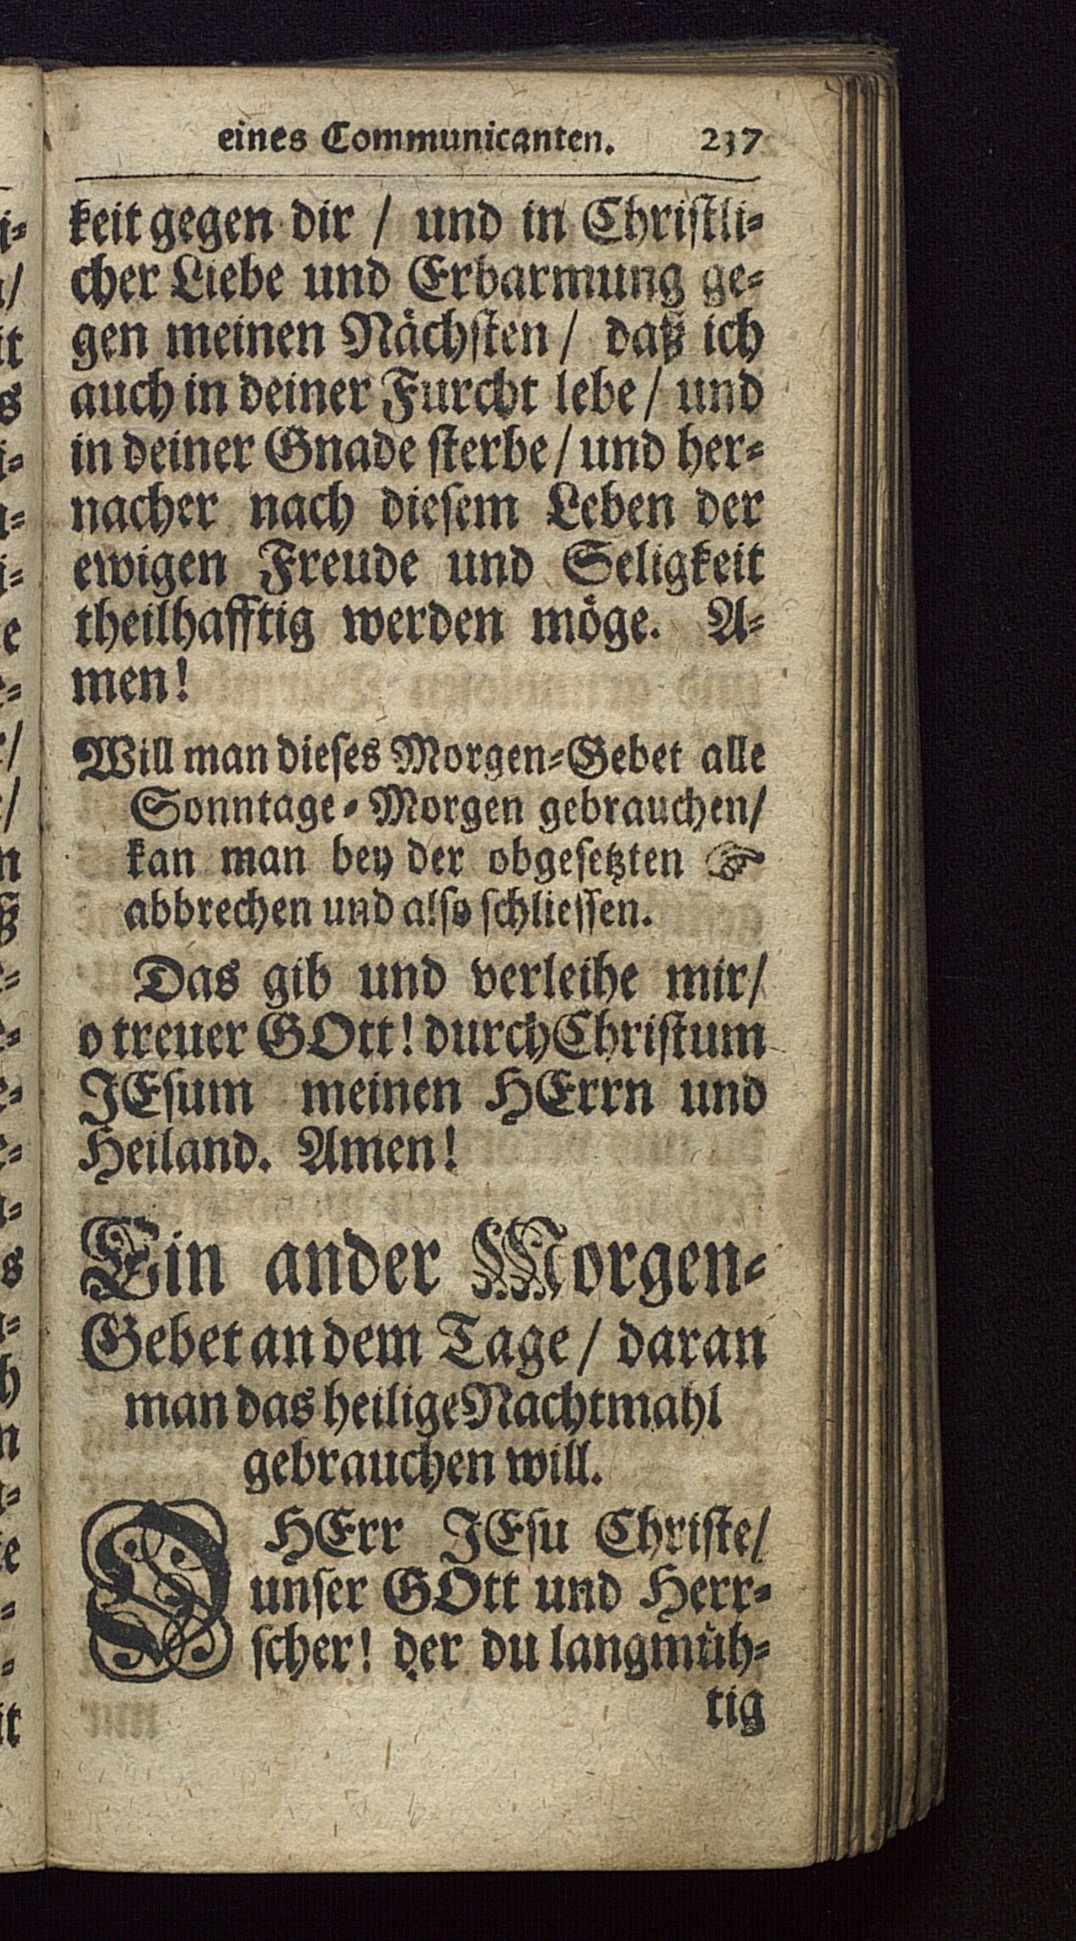 eines Communicanten. 237
keit gegen dir / und in Christli⸗
cher Liebe und Erbarmung ge⸗
gen meinen Nächsten / daß ich
auch in deiner Furcht lebe / und
in deiner Gnade sterbe / und her⸗
nacher nach diesem Leben der
ewigen Freude und Seligkeit
theilhafftig werden möge. A⸗
men!
Will man dieses Morgen⸗Gebet alle
Sonntage⸗Morgen gebrauchen/
kan man bey der obgesetzten ☞
abbrechen und also schliessen.
Das gib und verleihe mir/
o treuer GOtt! durch Christum
JEsum meinen HErrn und
Heiland. Amen!
Ein ander Morgen⸗
Gebet an dem Tage / daran
man das heilige Nachtmahl
gebrauchen will.
O HErr JEsu Christe/
unser GOtt und Herr⸗
scher! der du langmüh⸗
tig